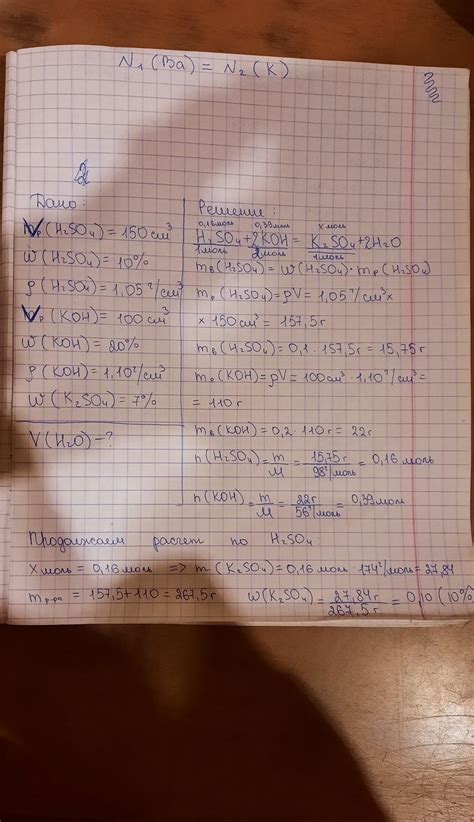 N₁(Ba) = N₂(K)
2
Дано:
Vₚ(H₂SO₄) = 150 см³
W(H₂SO₄) = 10%
ρ(H₂SO₄) = 1,05 г/см³
Vₚ(KOH) = 100 см³
W(KOH) = 20%
ρ(KOH) = 1,10 г/см³
W(K₂SO₄) = 7%
V(H₂O) - ?
Решение:
0,16моль 0,39моль x моль
H₂SO₄ + 2KOH = K₂SO₄ + 2H₂O
1моль 2моль 1моль
mв(H₂SO₄) = W(H₂SO₄) · mр(H₂SO₄)
mр(H₂SO₄) = ρV = 1,05 г/см³ ×
× 150 см³ = 157,5 г
mв(H₂SO₄) = 0,1 · 157,5 г = 15,75 г
mр(KOH) = ρV = 100 см³ · 1,10 г/см³ =
= 110 г
mв(KOH) = 0,2 · 110 г = 22 г
n(H₂SO₄) = m/M = 15,75 г/98 г/моль = 0,16 моль
n(KOH) = m/M = 22 г/56 г/моль = 0,39 моль
Продолжаем расчет по H₂SO₄:
x моль = 0,16 моль => m(K₂SO₄) = 0,16 моль · 174 г/моль = 27,84
mр-ра = 157,5 + 110 = 267,5 г W(K₂SO₄) = 27,84 г/267,5 г = 0,10 (10%